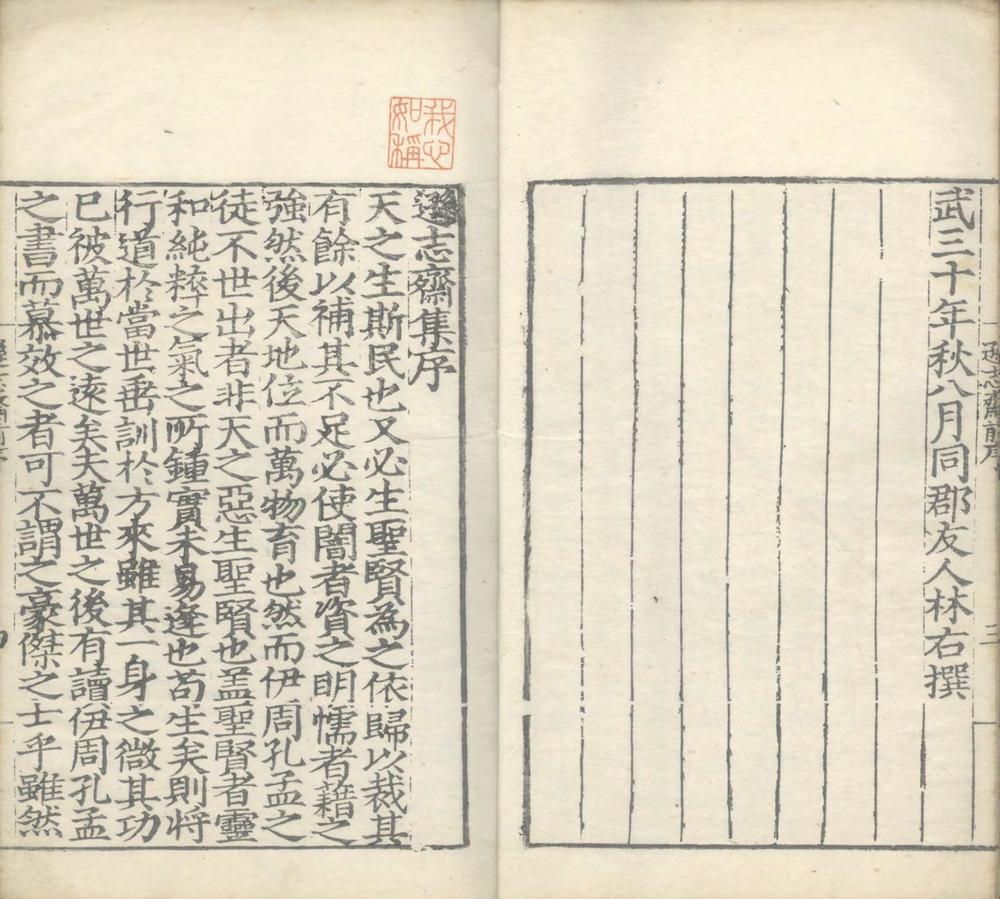 武三十年秋八月同郡友人林右撰
遜志齋前序
三
遜志齋集序
天之生斯民也又必生聖賢為之依歸以裁其
有餘以補其不足必使闇者資之明懦者藉之
強然後天地位而萬物育也然而伊周孔孟之
徒不世出者非天之惡生聖賢也盖聖賢者靈
和純粹之氣之所鍾實未易逢也苟生矣則將
行道於當世垂訓於方來雖其一身之微其功
已被萬世之遠矣夫萬世之後有讀伊周孔孟
之書而慕效之者可不謂之豪傑之士乎雖然
我心
如稱